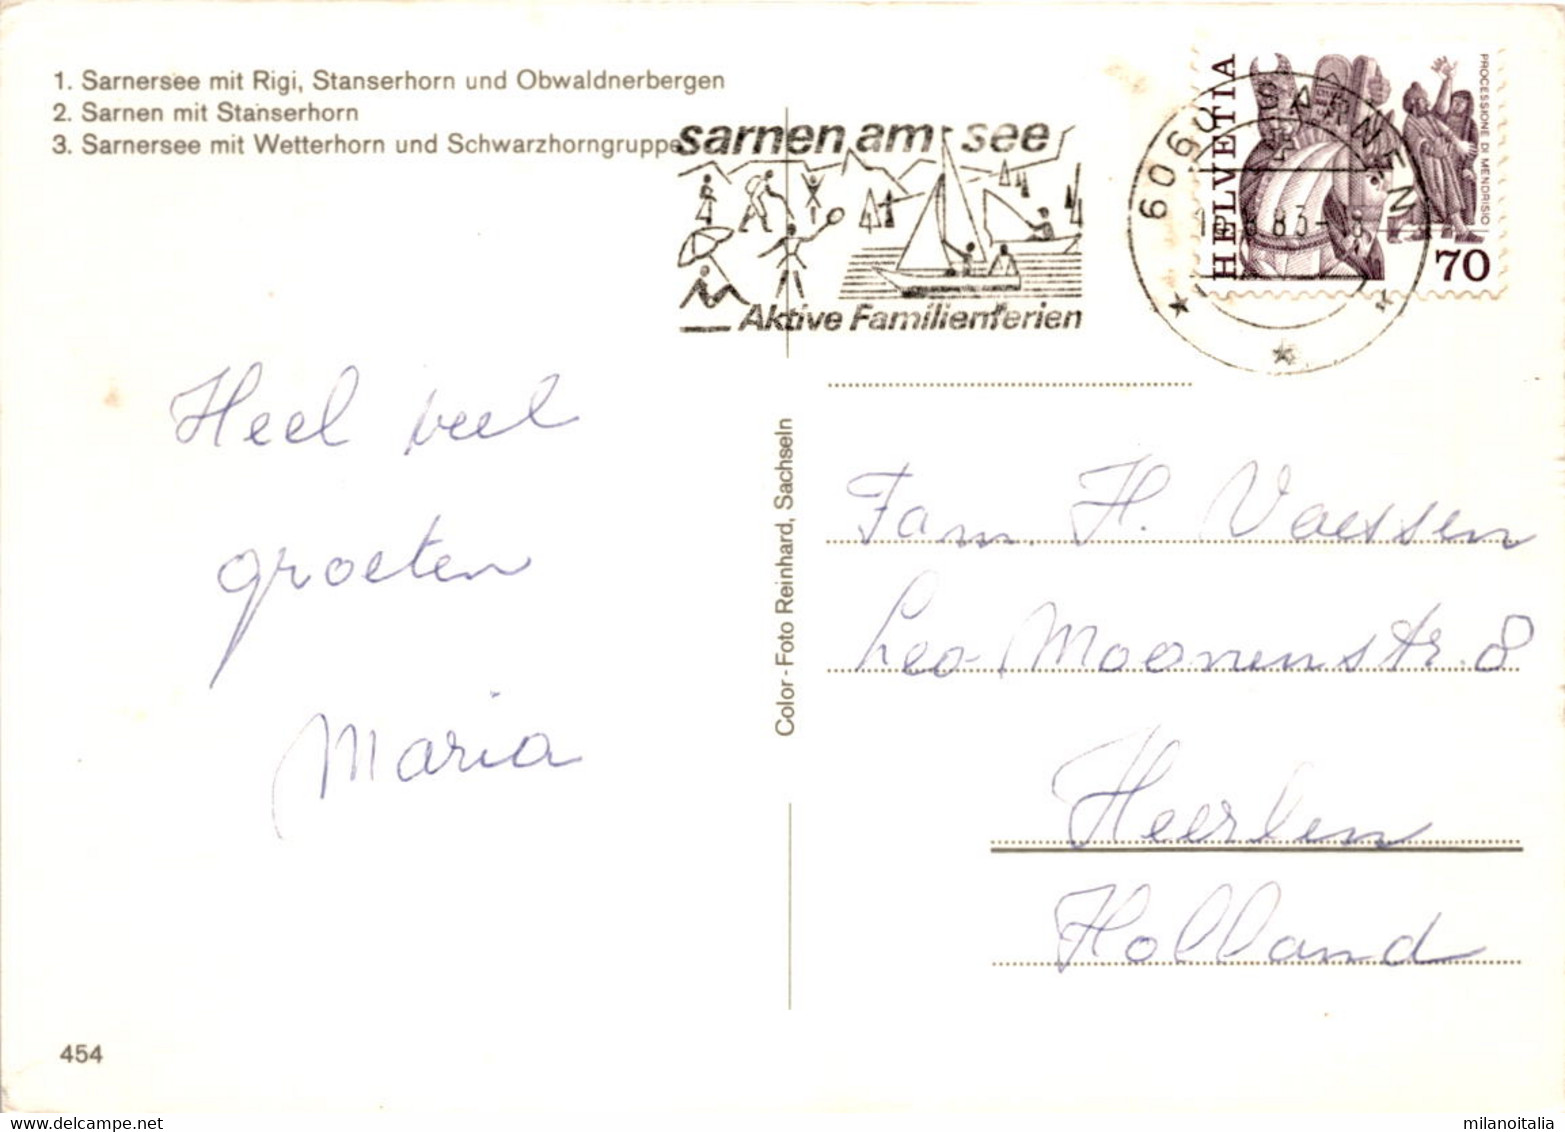 1. Sarnersee mit Rigi, Stanserhorn und Obwaldnerbergen
2. Sarnen mit Stanserhorn
3. Sarnersee mit Wetterhorn und Schwarzhorngruppe
sarnen am see
Aktive Familienferien
6060 SARNEN
HELVETIA
PROCESSIONE DI MENDRISIO
70
Heel veel
groeten
Maria
Color-Foto Reinhard, Sachseln
Fam. H. Vaessen
Leo-Moonenstr. 8
Heerlen
Holland
454
milanoitalia